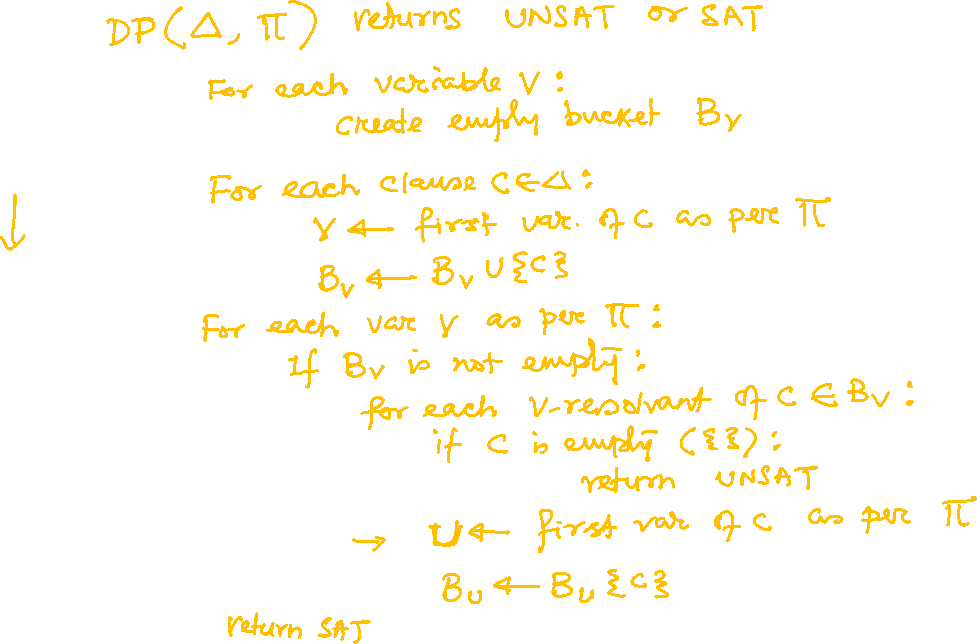 DP(Δ, π) returns UNSAT or SAT
For each variable V:
create empty bucket Bv
For each clause C∈Δ:
V ← first var. of C as per π
Bv ← Bv ∪ {C}
For each var V as per π:
If Bv is not empty:
for each V-resolvant of C ∈ Bv:
if C is empty ({}):
return UNSAT
→ U ← first var of C as per π
Bu ← Bu {C}
return SAT